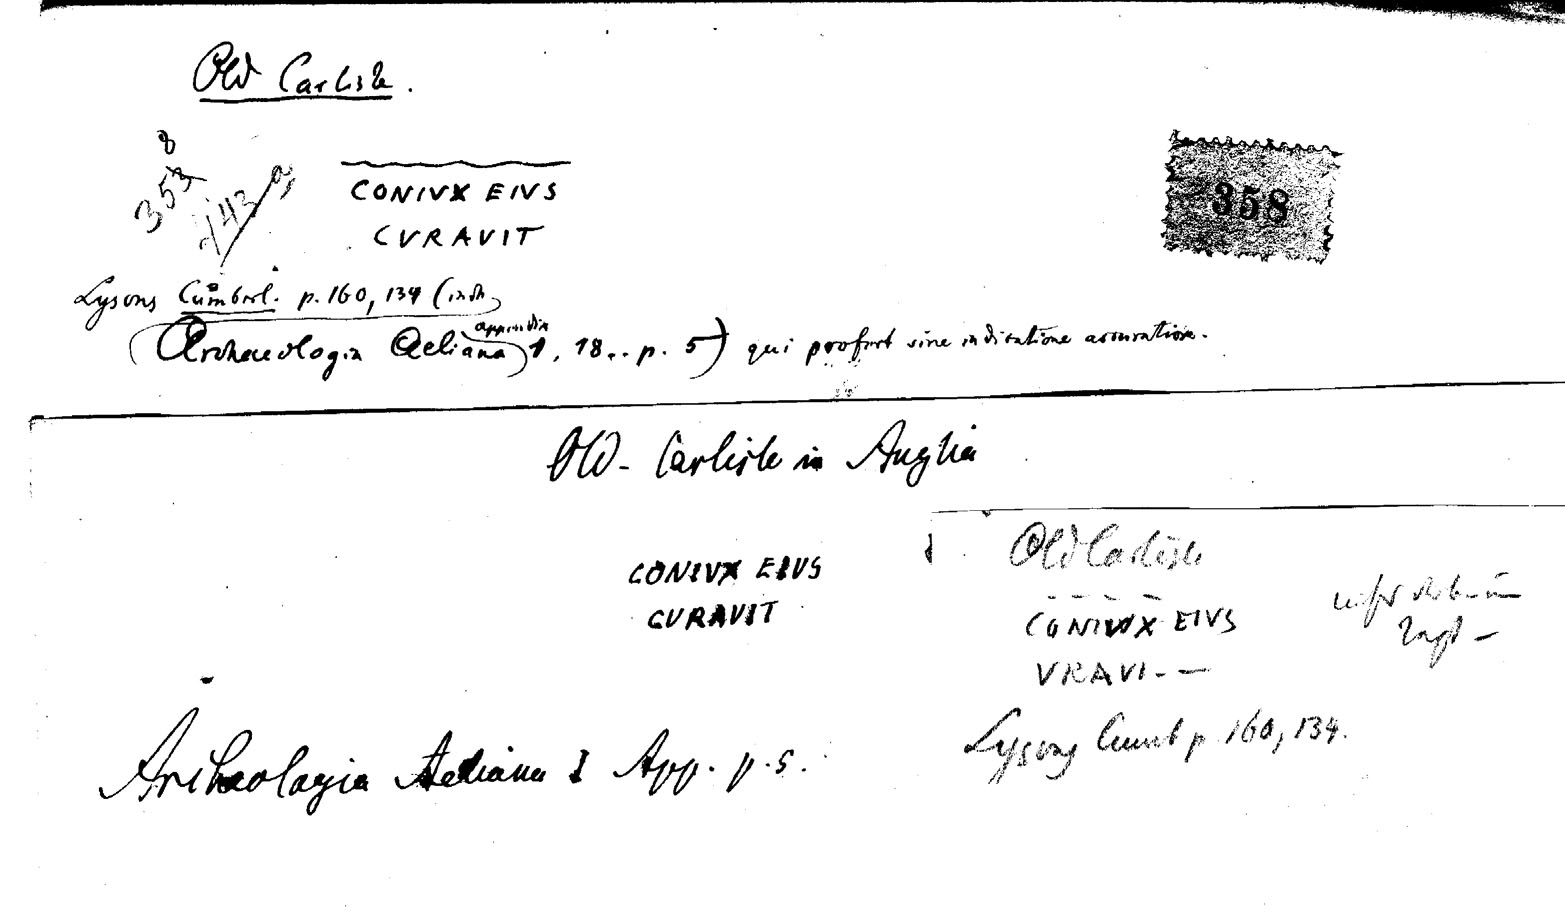 Old Carlisle.
3538
358
CONIVX EIVS
CVRAVIT
Lysons Cumberl. p. 160, 134 (inde
appendix
Archaeologia Aeliana 1, 18.. p. 5) qui profert sine indicatione accuratiore.
Old-Carlisle in Anglia
CONIVX EIVS
CVRAVIT
Archaeologia Aeliana I App. p. 5.
Old Carlisle
CONIVX EIVS
VRAVI - —
Lysons Cumb p. 160, 134.